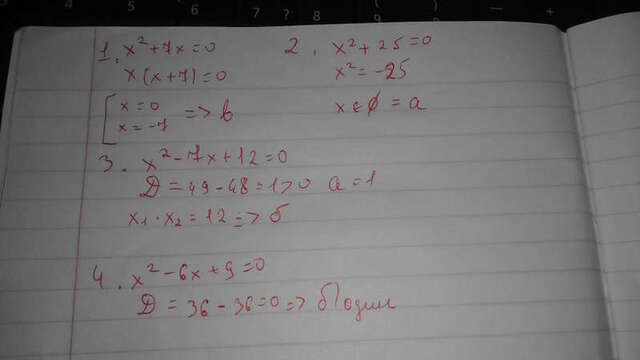 1. x² + 7x = 0
x(x+7) = 0
[ x = 0
x = -7 => в
2. x² + 25 = 0
x² = -25
x ∈ ∅ = a
3. x² - 7x + 12 = 0
D = 49 - 48 = 1 > 0 a = 1
x₁ · x₂ = 12 => б
4. x² - 6x + 9 = 0
D = 36 - 36 = 0 => б) один